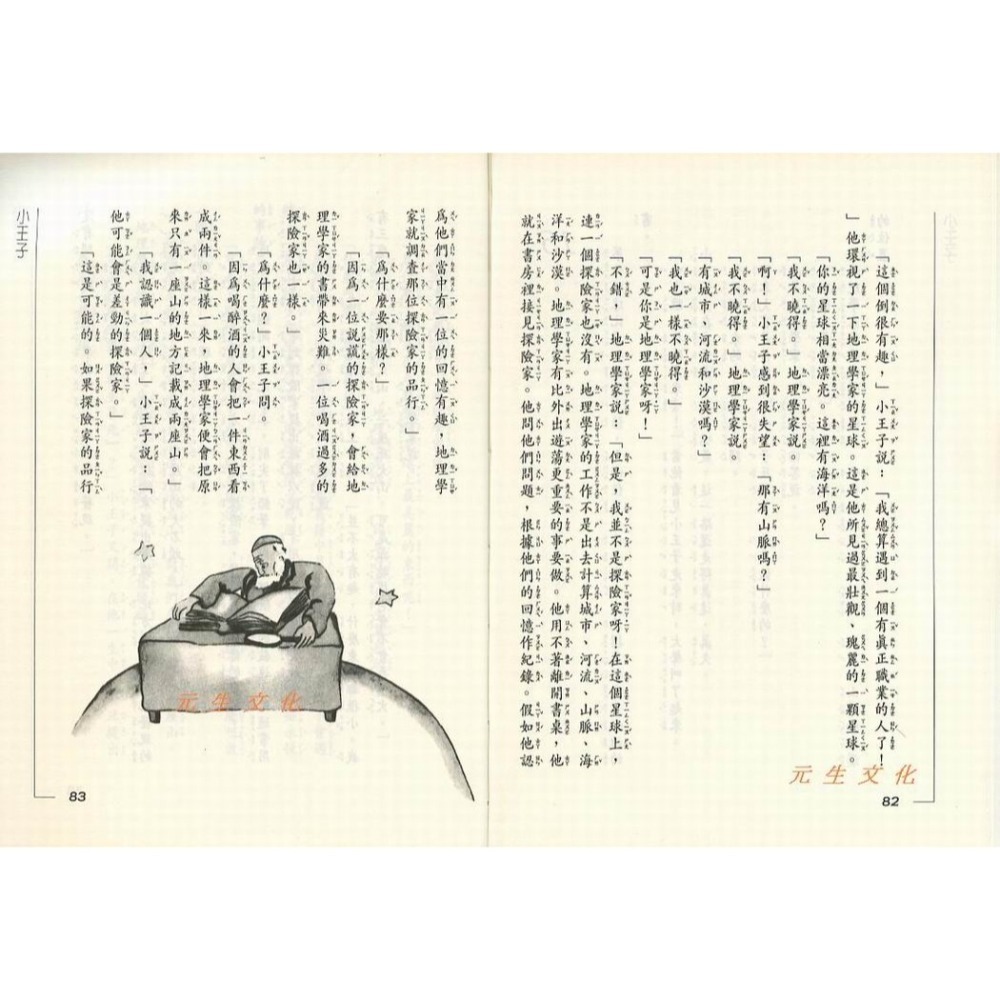 「這個倒很有趣，」小王子說：「我總算遇到一個有真正職業的人了！
」他環視了一下地理學家的星球。這是他所見過最壯觀、瑰麗的一顆星球。
「你的星球相當漂亮。這裡有海洋嗎？」
「我不曉得。」地理學家說。
「啊！」小王子感到很失望：「那有山脈嗎？」
「我不曉得。」地理學家說。
「有城市、河流和沙漠嗎？」
「我也一樣不曉得。」
「可是你是地理學家呀！」
「不錯，」地理學家說：「但是，我並不是探險家呀！在這個星球上，
連一個探險家也沒有。地理學家的工作不是出去計算城市、河流、山脈、海
洋和沙漠。地理學家有比外出遊蕩更重要的事要做。他用不著離開書桌，他
就在書房裡接見探險家。他問他們問題，根據他們的回憶作紀錄。假如他認
元生文化
82
為他們當中有一位的回憶有趣，地理學
家就調查那位探險家的品行。」
「為什麼要那樣？」
「因為一位說謊的探險家，會給地
理學家的書帶來災難。一位喝酒過多的
探險家也一樣。」
「為什麼？」小王子問。
「因為喝醉酒的人會把一件東西看
成兩件。這樣一來，地理學家便會把原
來只有一座山的地方記載成兩座山。」
「我認識一個人，」小王子說：「
他可能會是差勁的探險家。」
「這是可能的。如果探險家的品行
元生文化
小王子
83